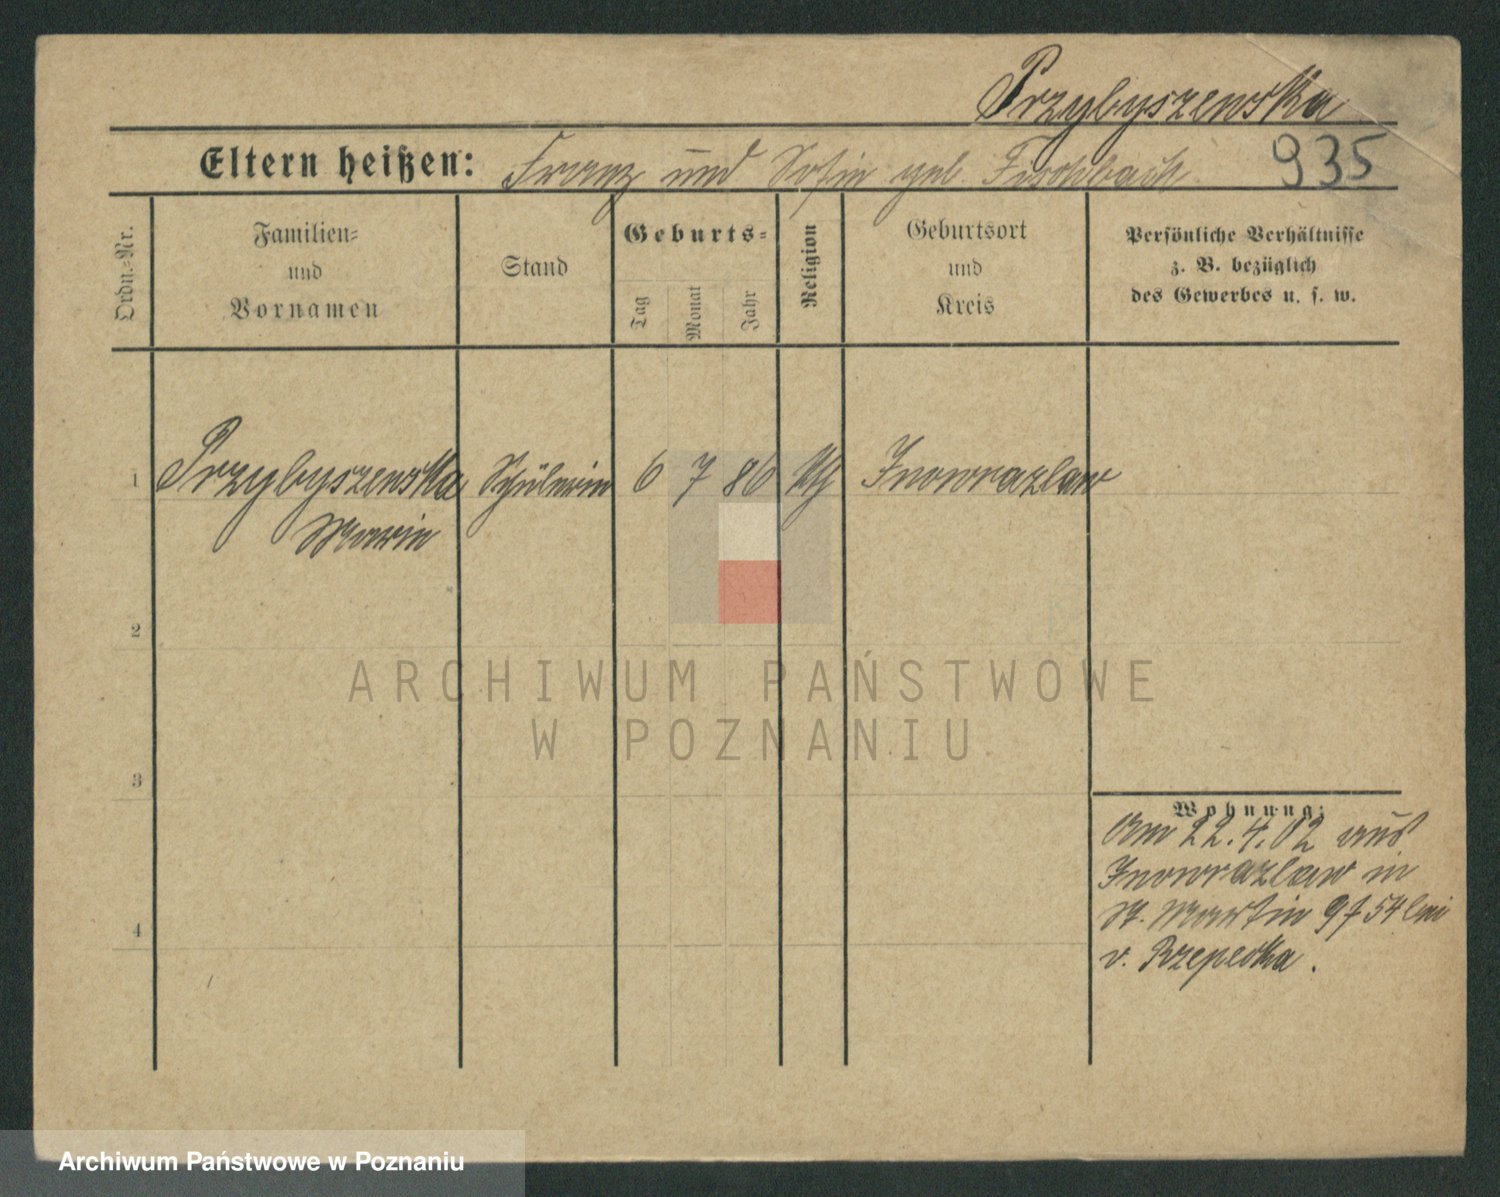 Przybyszewska
Eltern heißen: Franz und Sofie geb. Fischbach 935
Ordn.-Nr.
Familien-
und
Vornamen
Stand
Geburts-
Tag
Monat
Jahr
Religion
Geburtsort
und
Kreis
Persönliche Verhältnisse
z. B. bezüglich
des Gewerbes u. s. w.
1 Przybyszewska Schülerin 6 7 86 kth Inowrazlaw
Marie
2
3
4
Wohnung:
Am 22.4.02 aus
Inowrazlaw in
St. Martin bei
v. Rzepecka.
ARCHIWUM PAŃSTWOWE
W POZNANIU
Archiwum Państwowe w Poznaniu